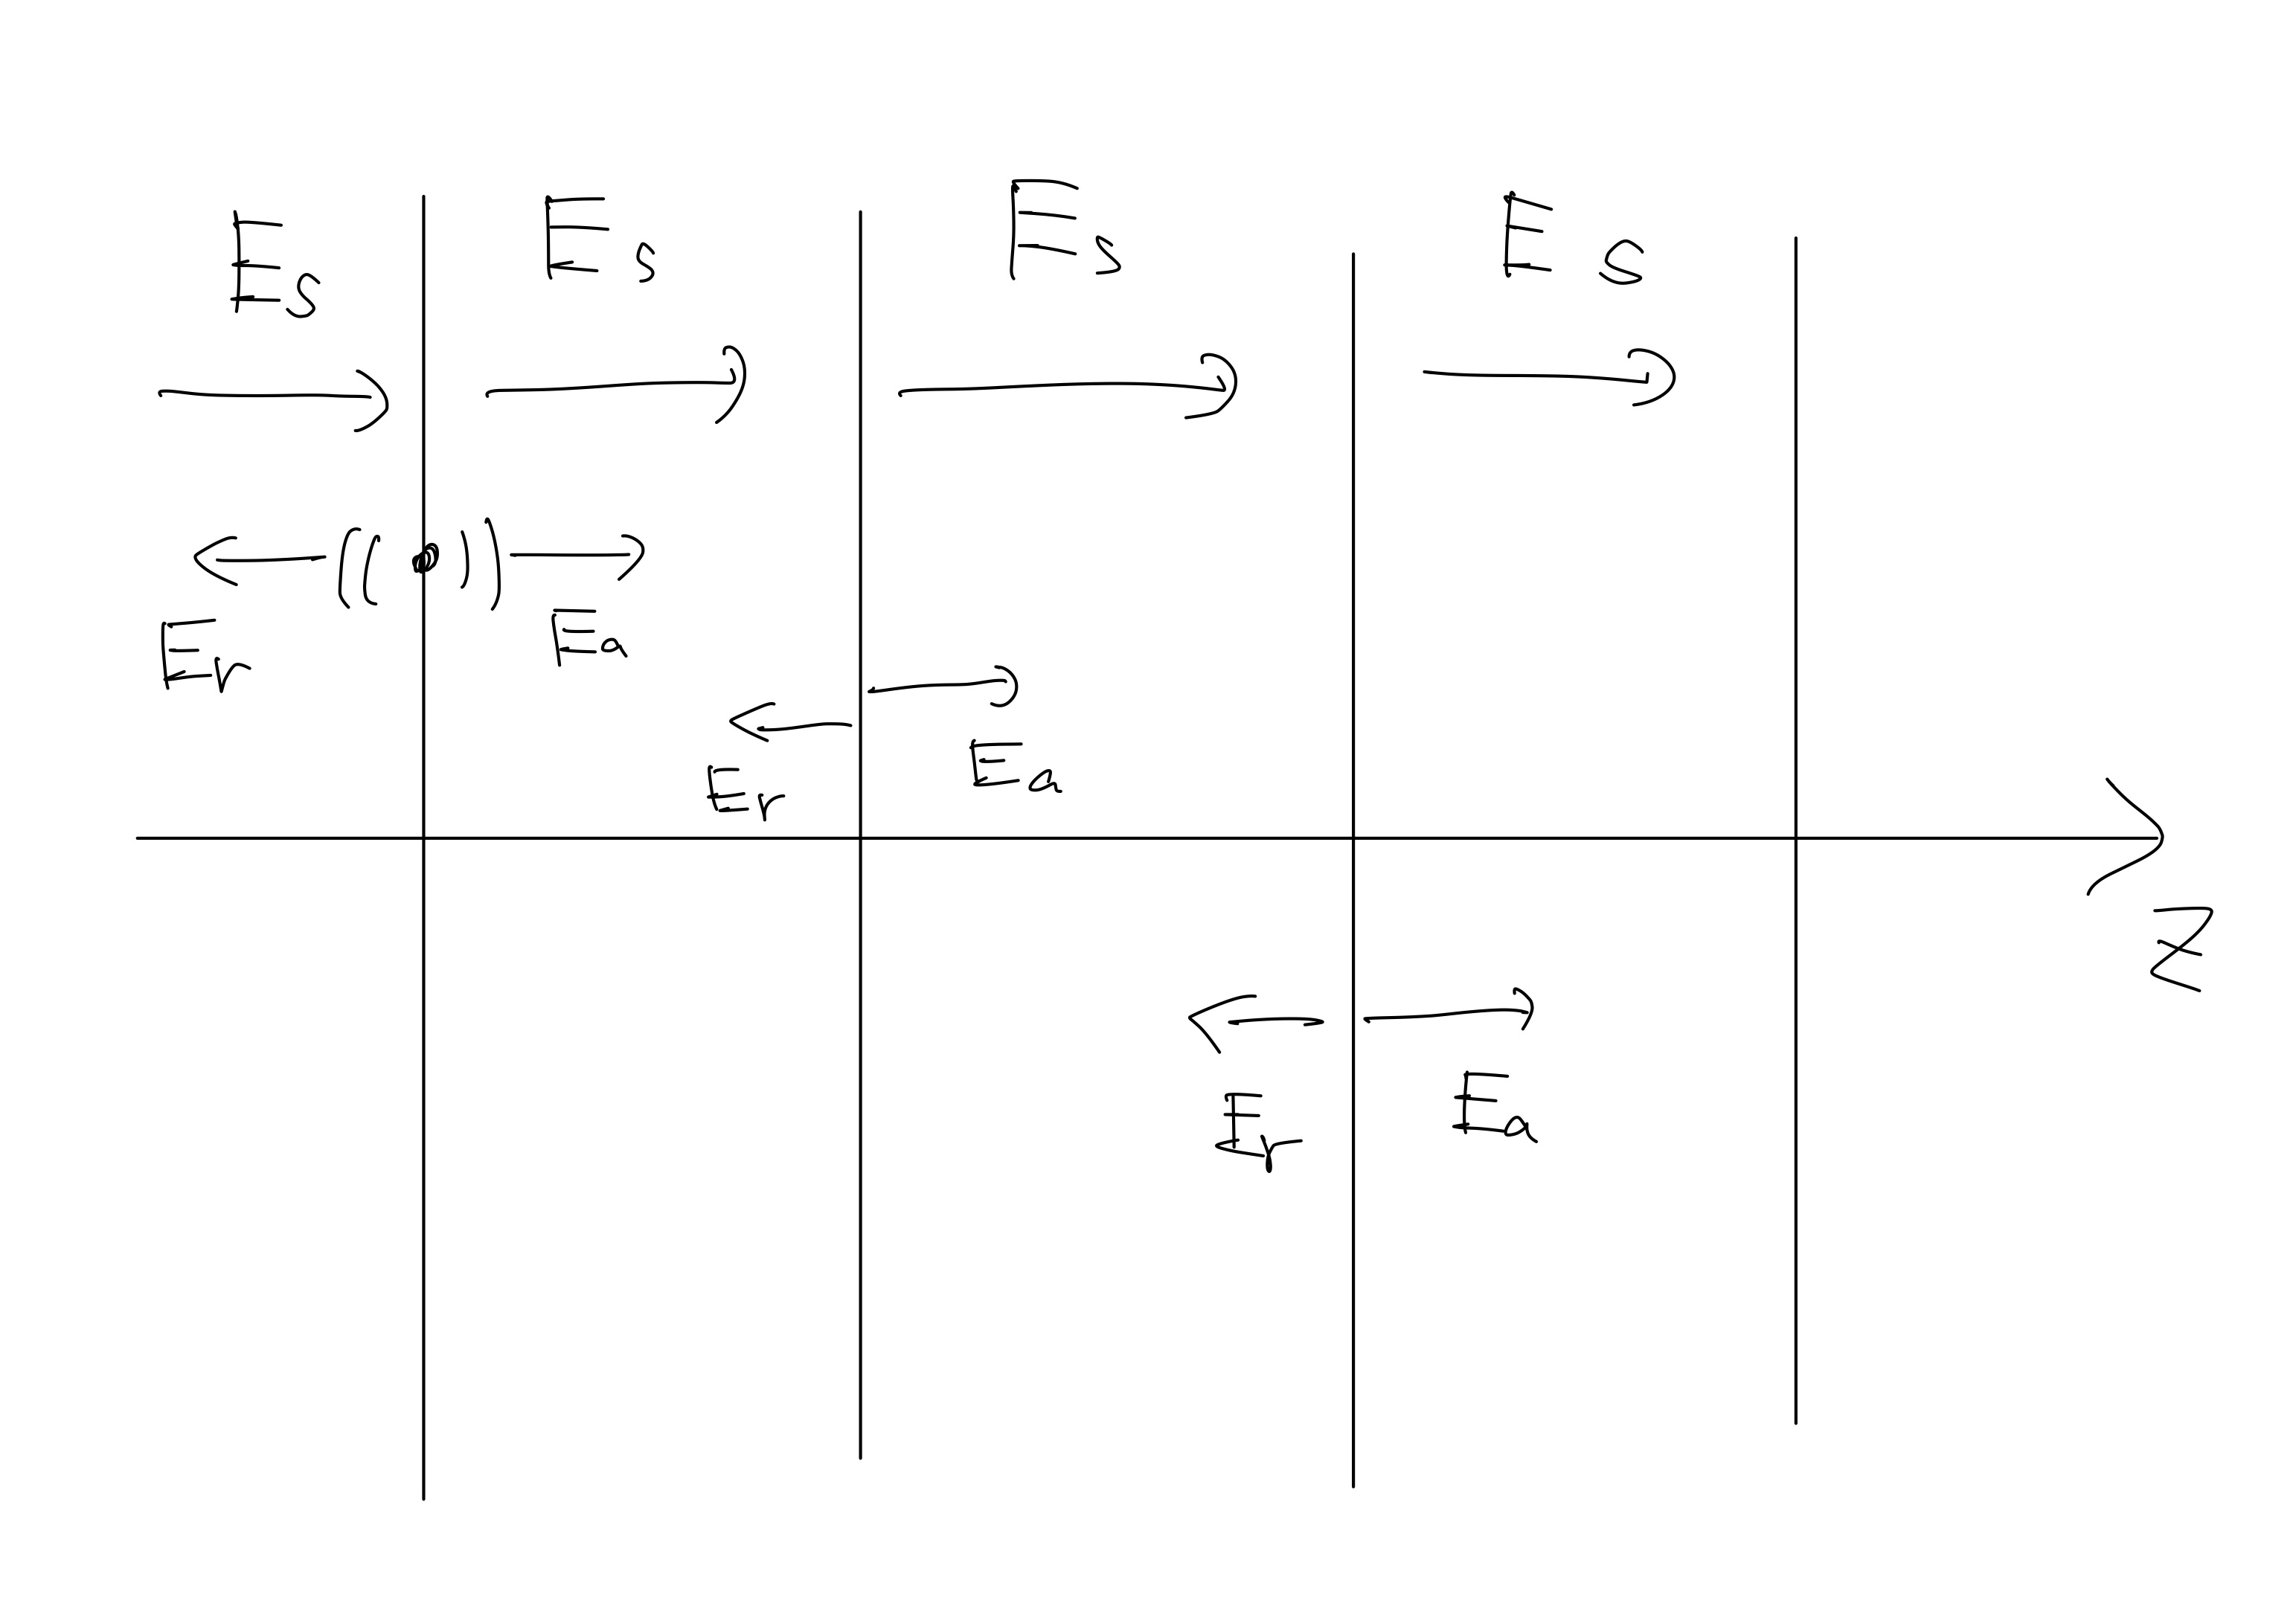 Es Es Es Es
Er Ea
Er Ea
Z
Er Ea